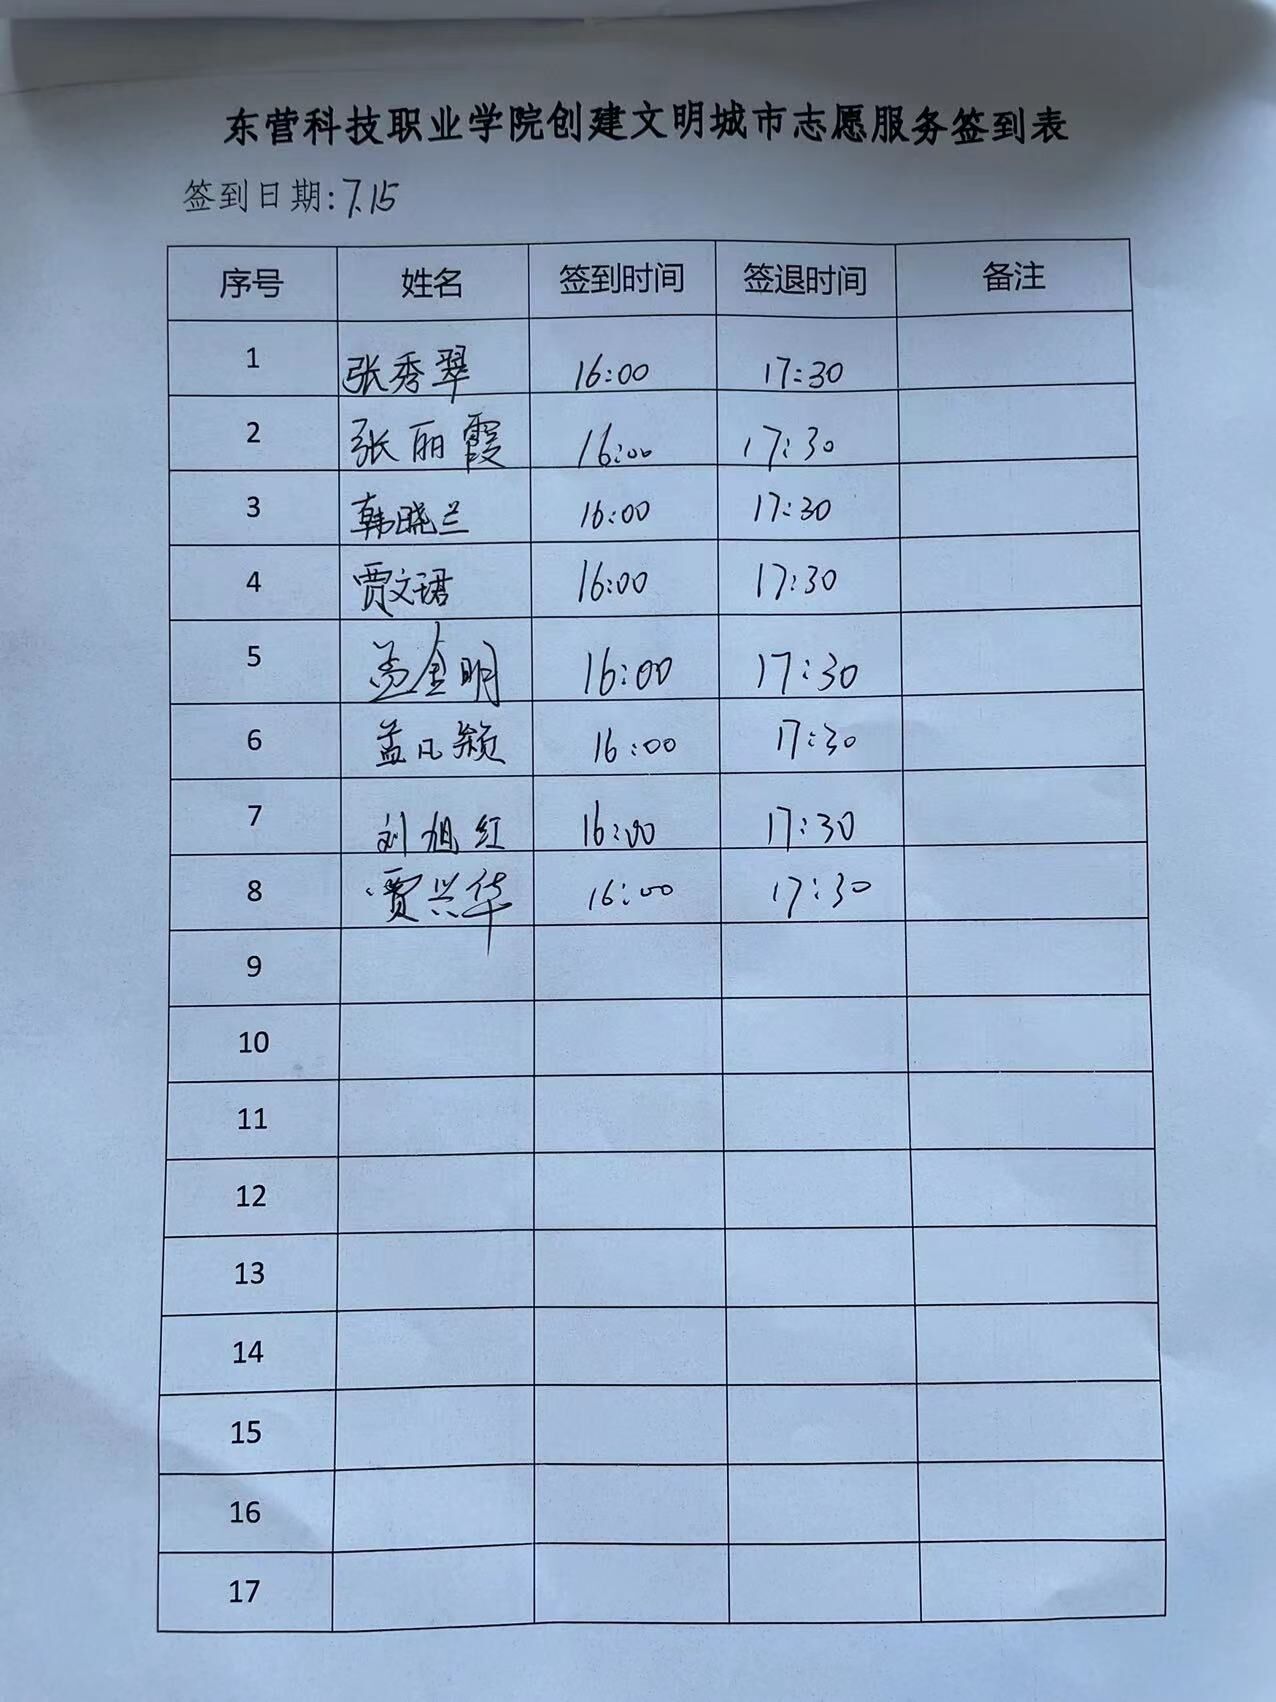 东营科技职业学院创建文明城市志愿服务签到表
签到日期:7.15
序号 姓名 签到时间 签退时间 备注
1 张秀翠 16:00 17:30
2 张丽霞 16:00 17:30
3 韩晓兰 16:00 17:30
4 贾文珺 16:00 17:30
5 金明 16:00 17:30
6 孟凡颍 16:00 17:30
7 刘旭红 16:00 17:30
8 贾兴华 16:00 17:30
9
10
11
12
13
14
15
16
17